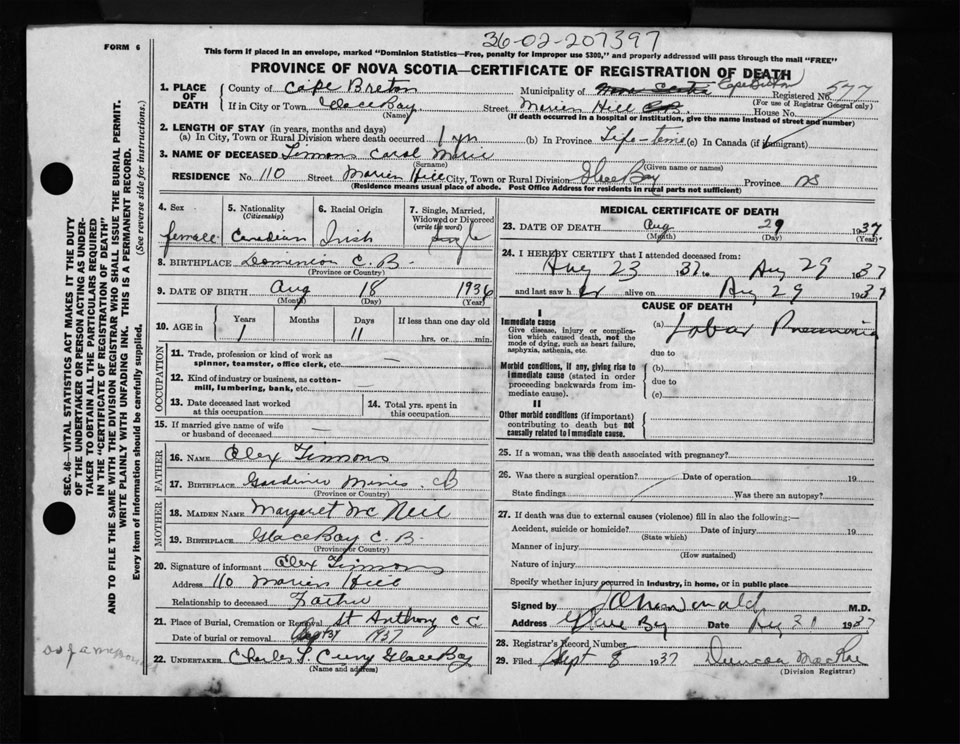 36-02-207397
FORM 6
This form if placed in an envelope, marked "Dominion Statistics—Free, penalty for improper use $300," and properly addressed will pass through the mail "FREE"
PROVINCE OF NOVA SCOTIA—CERTIFICATE OF REGISTRATION OF DEATH
1. PLACE OF DEATH
County of Cape Breton Municipality of Nova Scotia Cape Breton Registered No. 577
(For use of Registrar General only)
If in City or Town Glace Bay Street Marien Hill House No.
(Name) (If death occurred in a hospital or institution, give the name instead of street and number)
2. LENGTH OF STAY (in years, months and days)
(a) In City, Town or Rural Division where death occurred 1 yr (b) In Province Life-time (c) In Canada (if immigrant)
3. NAME OF DECEASED Timmons Carol Marie
(Surname) (Given name or names)
RESIDENCE No. 110 Street Marien Hill City, Town or Rural Division Glace Bay Province NS
(Residence means usual place of abode. Post Office Address for residents in rural parts not sufficient)
4. Sex
female
5. Nationality
(Citizenship)
Canadian
6. Racial Origin
Irish
7. Single, Married, Widowed or Divorced
(write the word)
Single
8. BIRTHPLACE Dominion C. B.
(Province or Country)
9. DATE OF BIRTH Aug 18 1936
(Month) (Day) (Year)
10. AGE in
Years Months Days If less than one day old
1 11 hrs. or min.
OCCUPATION
11. Trade, profession or kind of work as spinner, teamster, office clerk, etc. —
12. Kind of industry or business, as cotton-mill, lumbering, bank, etc. —
13. Date deceased last worked at this occupation
14. Total yrs. spent in this occupation
15. If married give name of wife or husband of deceased —
FATHER
16. NAME Alex Timmons
17. BIRTHPLACE Gardiner Mines CB
(Province or Country)
MOTHER
18. MAIDEN NAME Margaret McNeil
19. BIRTHPLACE Glace Bay C. B.
(Province or Country)
20. Signature of informant Alex Timmons
Address 110 Marien Hill
Relationship to deceased Father
21. Place of Burial, Cremation or Removal St Anthony C C
Date of burial or removal 1937
22. UNDERTAKER Charles Curry Glace Bay
(Name and address)
MEDICAL CERTIFICATE OF DEATH
23. DATE OF DEATH Aug 29 1937
(Month) (Day) (Year)
24. I HEREBY CERTIFY that I attended deceased from:
Aug 23 1937 to Aug 29 1937
and last saw her alive on Aug 29 1937
CAUSE OF DEATH
I
Immediate cause
Give disease, injury or complication which caused death, not the mode of dying, such as heart failure, asphyxia, asthenia, etc.
(a) Lobar Pneumonia
due to
Morbid conditions, if any, giving rise to immediate cause (stated in order proceeding backwards from immediate cause).
(b)
due to
(c)
II
Other morbid conditions (if important) contributing to death but not causally related to immediate cause.
25. If a woman, was the death associated with pregnancy?
26. Was there a surgical operation? Date of operation 19
State findings Was there an autopsy?
27. If death was due to external causes (violence) fill in also the following:—
Accident, suicide or homicide? Date of injury 19
(State which)
Manner of injury
(How sustained)
Nature of injury
Specify whether injury occurred in industry, in home, or in public place
Signed by M.D.
Address Glace Bay Date Aug 31 1937
28. Registrar's Record Number
29. Filed Sept 8 1937 Duncan MacRae
(Division Registrar)
SEC. 46—VITAL STATISTICS ACT MAKES IT THE DUTY OF THE UNDERTAKER OR PERSON ACTING AS UNDERTAKER TO OBTAIN ALL THE PARTICULARS REQUIRED IN THE "CERTIFICATE OF REGISTRATION OF DEATH" AND TO FILE THE SAME WITH THE DIVISION REGISTRAR WHO SHALL ISSUE THE BURIAL PERMIT.
WRITE PLAINLY WITH UNFADING INK. THIS IS A PERMANENT RECORD.
Every item of information should be carefully supplied. (See reverse side for instructions.)